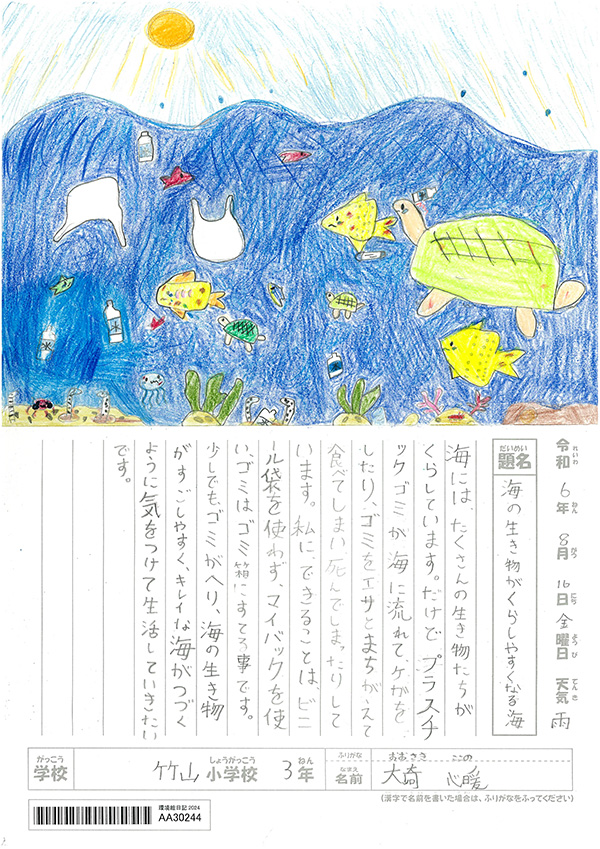 水
水
令和6年8月16日金曜日 天気 雨
れいわ ねん がつ にち ようび てんき
だいめい
題名 海の生き物がくらしやすくなる海
海には、たくさんの生き物たちが
くらしています。だけどプラスチ
ックゴミが海に流れて、ケガを
したり、ゴミをエサとまちがえて
食べてしまい死んでしまったりして
います。私にできることは、ビニ
ール袋を使わず、マイバックを使
い、ゴミはゴミ箱にすてる事です。
少しでもゴミがへり、海の生き物
がすごしやすく、キレイな海がつづく
ように気をつけて生活していきたい
です。
がっこう しょうがっこう ねん
学校 竹山小学校 3年
ふりがな おおさき ここの
なまえ
名前 大崎 心暖
(漢字で名前を書いた場合は、ふりがなをふってください)
環境絵日記2024
AA30244